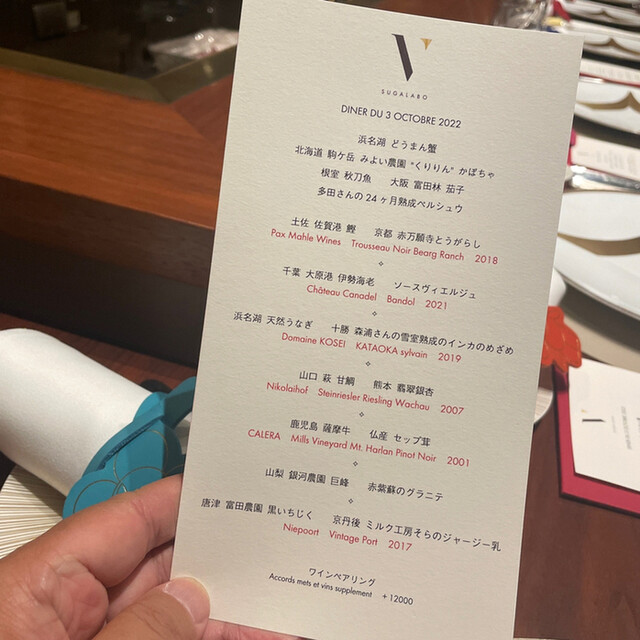 V
SUGALABO
DINER DU 3 OCTOBRE 2022
浜名湖 どうまん蟹
北海道 駒ケ岳 みよい農園 "くりりん" かぼちゃ
根室 秋刀魚 大阪 富田林 茄子
多田さんの24ヶ月熟成ペルシュウ
土佐 佐賀港 鰹 京都 赤万願寺とうがらし
Pax Mahle Wines Trousseau Noir Bearg Ranch 2018
千葉 大原港 伊勢海老 ソースヴィエルジュ
Château Canadel Bandol 2021
浜名湖 天然うなぎ 十勝 森浦さんの雪室熟成のインカのめざめ
Domaine KOSEI KATAOKA sylvain 2019
山口 萩 甘鯛 熊本 翡翠銀杏
Nikolaihof Steinriesler Riesling Wachau 2007
鹿児島 薩摩牛 仏産 セップ茸
CALERA Mills Vineyard Mt. Harlan Pinot Noir 2001
山梨 銀河農園 巨峰 赤紫蘇のグラニテ
唐津 富田農園 黒いちじく 京丹後 ミルク工房そらのジャージー乳
Niepoort Vintage Port 2017
ワインペアリング
Accords mets et vins supplement +12000